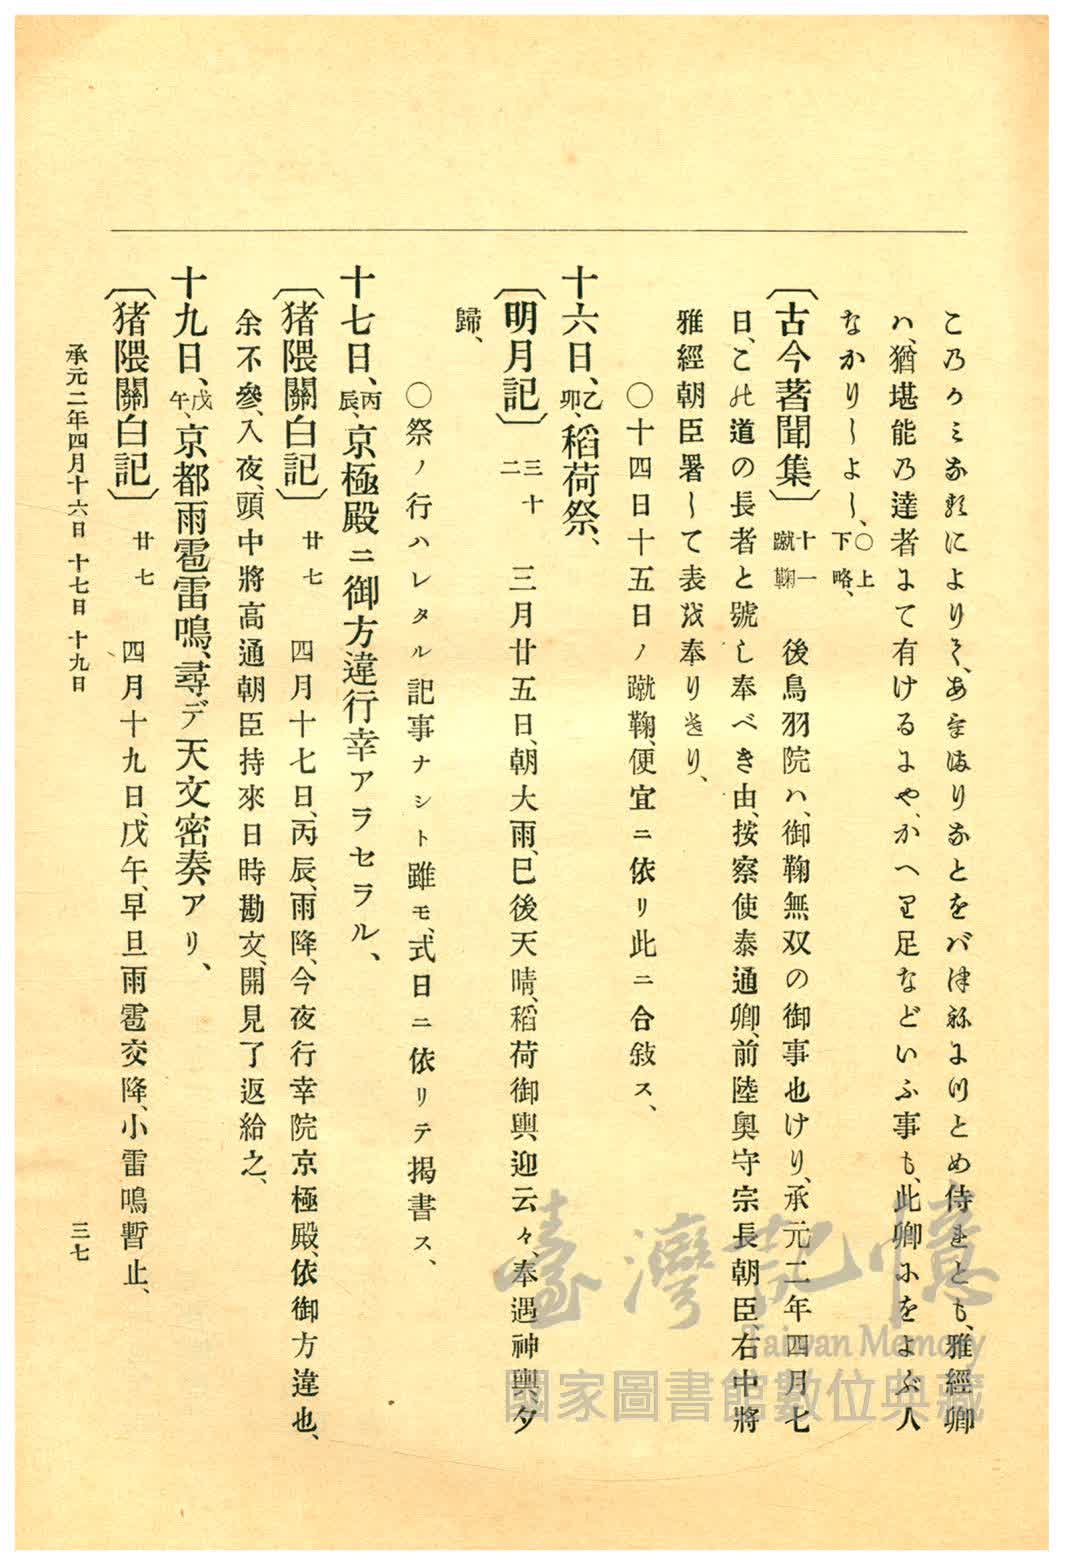 によりて、なとをバとめ侍れとも、雅經卿
ハ、猶堪能乃達者にて有けるにや、かへり足などいふ事も、此卿にをよぶ人
なかりしよし、○上下略、
〔古今著聞集〕十一蹴鞠 後鳥羽院ハ、御鞠無双の御事也けり、承元二年四月七
日、この道の長者と號し奉べき由、按察使泰通卿、前陸奧守宗長朝臣、右中將
雅經朝臣署して表を奉り
○十四日十五日ノ蹴鞠、便宜ニ依リ此ニ合敍ス、
十六日、乙卯、稻荷祭、
〔明月記〕三十二 三月廿五日、朝大雨、巳後天晴、稻荷御輿、迎云々、奉遇神輿、夕
歸、
○祭ノ行ハレタル記事ナシト雖モ、式日ニ依リテ揭書ス、
十七日、丙辰、京極殿ニ御方違行幸アラセラル、
〔猪隈關白記〕廿七 四月十七日、丙辰、雨降、今夜行幸院京極殿、依御方違也、
余不參、入夜、頭中將高通朝臣持來日時勘文、開見了返給之、
十九日、戊午、京都雨雹雷鳴、尋デ天文密奏アリ、
〔猪隈關白記〕廿七 四月十九日、戊午、早旦雨雹交降、小雷鳴暫止、
承元二年四月十六日 十七日 十九日
三七
臺灣記憶
Taiwan Memory
國家圖書館數位典藏